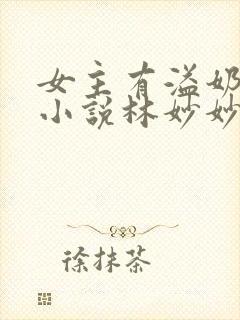 女主有溢奶
小说林妙妙
徐抹茶